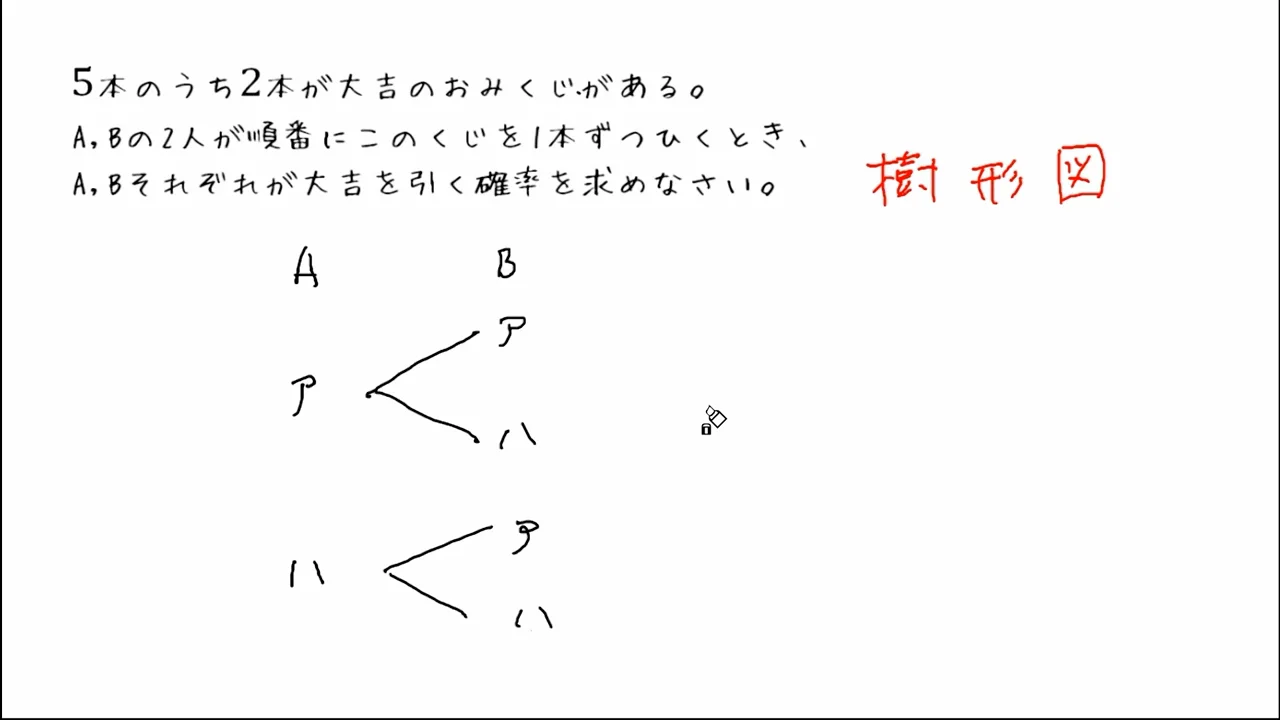 5本のうち2本が大吉のおみくじがある。
A,Bの2人が順番にこのくじを1本ずつひくとき、
A,Bそれぞれが大吉を引く確率を求めなさい。
樹形図
A B
ア
ア
ハ
ア
ハ
ハ